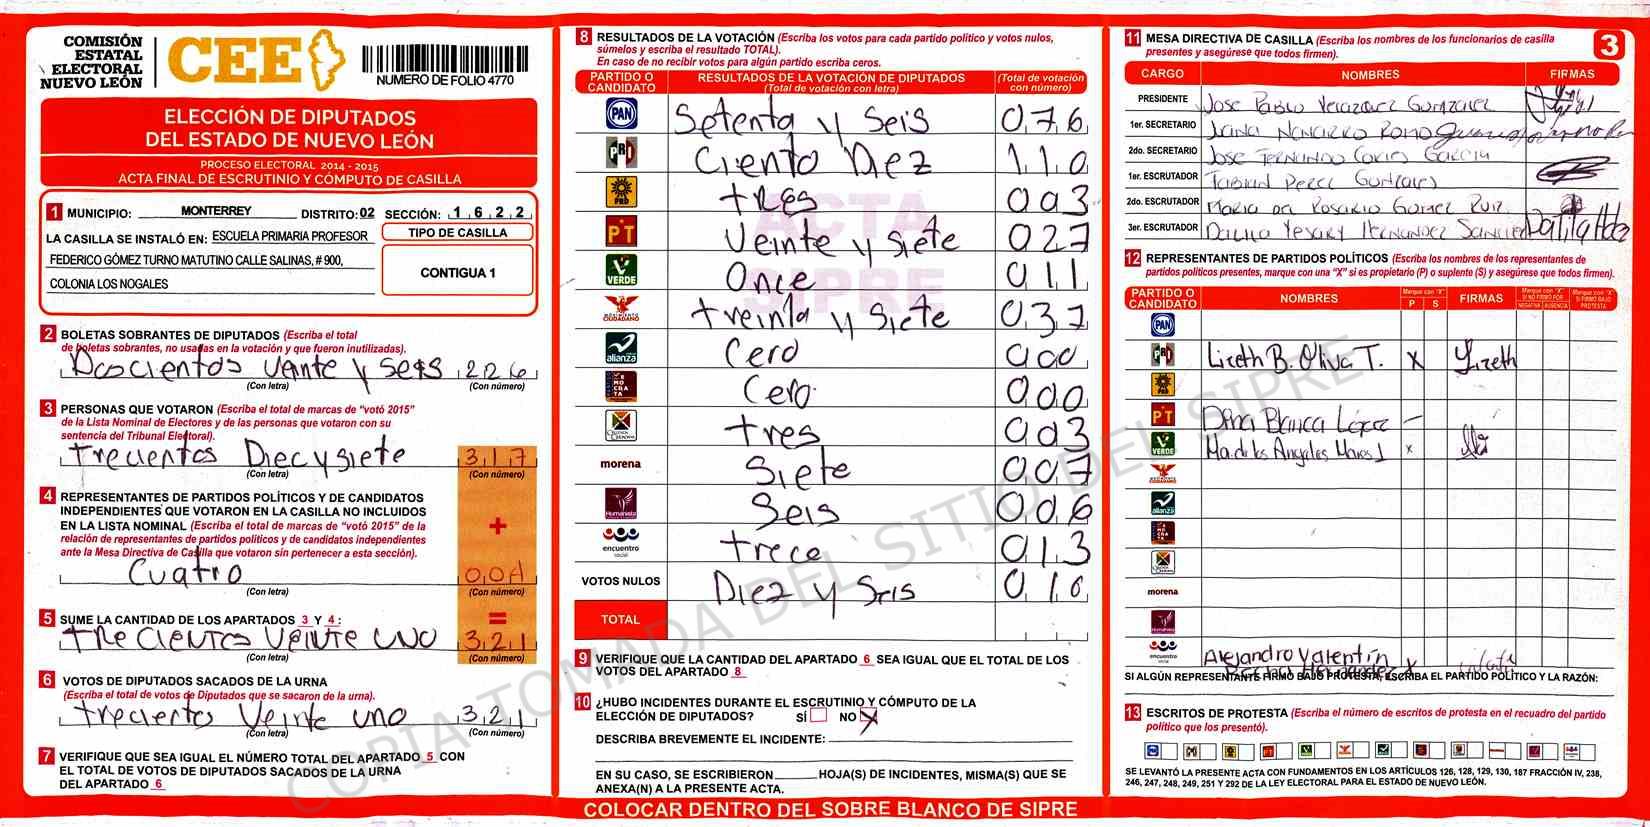 COMISIÓN
ESTATAL
ELECTORAL
NUEVO LEÓN
CEE
NUMERO DE FOLIO 4770
ELECCIÓN DE DIPUTADOS
DEL ESTADO DE NUEVO LEÓN
PROCESO ELECTORAL 2014 - 2015
ACTA FINAL DE ESCRUTINIO Y CÓMPUTO DE CASILLA
1 MUNICIPIO: MONTERREY DISTRITO: 02 SECCIÓN: 1 6 2 2
LA CASILLA SE INSTALÓ EN: ESCUELA PRIMARIA PROFESOR
FEDERICO GÓMEZ TURNO MATUTINO CALLE SALINAS, # 900,
COLONIA LOS NOGALES
TIPO DE CASILLA
CONTIGUA 1
2 BOLETAS SOBRANTES DE DIPUTADOS (Escriba el total
de boletas sobrantes, no usadas en la votación y que fueron inutilizadas).
Doscientos Veinte y Seis 226
(Con letra) (Con número)
3 PERSONAS QUE VOTARON (Escriba el total de marcas de "votó 2015"
de la Lista Nominal de Electores y de las personas que votaron con su
sentencia del Tribunal Electoral).
trecientos Diez y siete 317
(Con letra) (Con número)
4 REPRESENTANTES DE PARTIDOS POLÍTICOS Y DE CANDIDATOS
INDEPENDIENTES QUE VOTARON EN LA CASILLA NO INCLUIDOS
EN LA LISTA NOMINAL (Escriba el total de marcas de "votó 2015" de la
relación de representantes de partidos políticos y de candidatos independientes
ante la Mesa Directiva de Casilla que votaron sin pertenecer a esta sección).
+
Cuatro 004
(Con letra) (Con número)
5 SUME LA CANTIDAD DE LOS APARTADOS 3 Y 4:
=
trecientos veinte uno 321
(Con letra) (Con número)
6 VOTOS DE DIPUTADOS SACADOS DE LA URNA
(Escriba el total de votos de Diputados que se sacaron de la urna).
trecientos Veinte uno 321
(Con letra) (Con número)
7 VERIFIQUE QUE SEA IGUAL EL NÚMERO TOTAL DEL APARTADO 5 CON
EL TOTAL DE VOTOS DE DIPUTADOS SACADOS DE LA URNA
DEL APARTADO 6
8 RESULTADOS DE LA VOTACIÓN (Escriba los votos para cada partido político y votos nulos,
súmelos y escriba el resultado TOTAL).
En caso de no recibir votos para algún partido escriba ceros.
PARTIDO O CANDIDATO RESULTADOS DE LA VOTACIÓN DE DIPUTADOS (Total de votación con letra) (Total de votación con número)
PAN Setenta y Seis 076
PRI Ciento Diez 110
PRD tres 003
PT Veinte y siete 027
VERDE Once 011
MOVIMIENTO CIUDADANO treinta y siete 037
alianza Cero 000
DEMOCRATA Cero 000
CRUZADA CIUDADANA tres 003
morena Siete 007
Humanista Seis 006
encuentro social trece 013
VOTOS NULOS Diez y Seis 016
TOTAL
ACTA
SIPRE
9 VERIFIQUE QUE LA CANTIDAD DEL APARTADO 6 SEA IGUAL QUE EL TOTAL DE LOS
VOTOS DEL APARTADO 8
10 ¿HUBO INCIDENTES DURANTE EL ESCRUTINIO Y CÓMPUTO DE LA
ELECCIÓN DE DIPUTADOS? SÍ NO X
DESCRIBA BREVEMENTE EL INCIDENTE:
EN SU CASO, SE ESCRIBIERON HOJA(S) DE INCIDENTES, MISMA(S) QUE SE
ANEXA(N) A LA PRESENTE ACTA.
COLOCAR DENTRO DEL SOBRE BLANCO DE SIPRE
11 MESA DIRECTIVA DE CASILLA (Escriba los nombres de los funcionarios de casilla
presentes y asegúrese que todos firmen).
3
CARGO NOMBRES FIRMAS
PRESIDENTE Jose Pablo Velazquez Gonzalez
1er. SECRETARIO Juana Navarro Romo
2do. SECRETARIO Jose Fernando Garcia
1er. ESCRUTADOR Fabian Perez Gonzales
2do. ESCRUTADOR Maria del Rosario Gomez Ruiz
3er. ESCRUTADOR Dalila Yesary Hernandez Dalila Hdez
12 REPRESENTANTES DE PARTIDOS POLÍTICOS (Escriba los nombres de los representantes de
partidos políticos presentes, marque con una "X" si es propietario (P) o suplente (S) y asegúrese que todos firmen).
PARTIDO O CANDIDATO NOMBRES Marque con "X" P S FIRMAS Marque con "X" SI NO FIRMÓ POR NEGATIVA AUSENCIA Marque con "X" SI FIRMÓ BAJO PROTESTA
PAN
PRI Lizeth B. Oliva T. X Lizeth
PRD
PT Dina Blanca López
VERDE Ma. de los Angeles X
MOVIMIENTO CIUDADANO
alianza
DEMOCRATA
morena
Humanista
encuentro social Alejandro Valentín
Hernandez X
SI ALGÚN REPRESENTANTE FIRMÓ BAJO PROTESTA, ESCRIBA EL PARTIDO POLÍTICO Y LA RAZÓN:
13 ESCRITOS DE PROTESTA (Escriba el número de escritos de protesta en el recuadro del partido
político que los presentó).
SE LEVANTÓ LA PRESENTE ACTA CON FUNDAMENTOS EN LOS ARTÍCULOS 126, 128, 129, 130, 187 FRACCIÓN IV, 238,
246, 247, 248, 249, 251 Y 292 DE LA LEY ELECTORAL PARA EL ESTADO DE NUEVO LEÓN.
COPIA TOMADA DEL SITIO DEL SIPRE